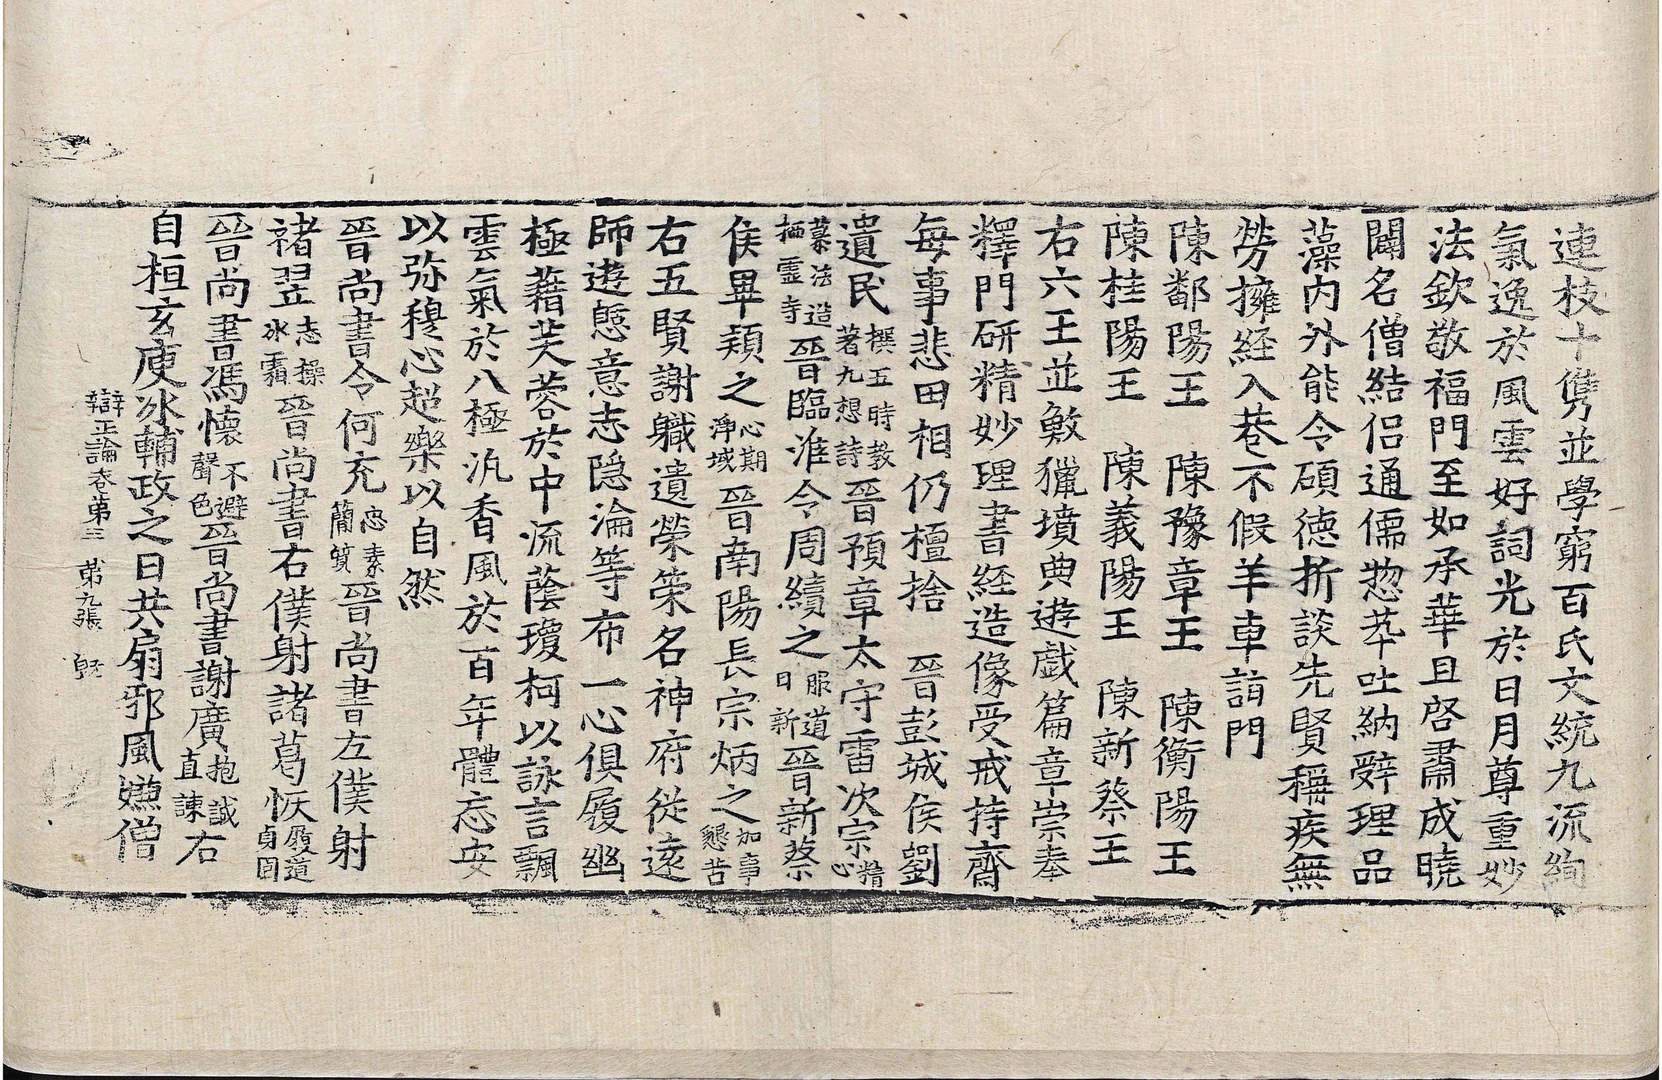 連枝十儁並學窮百氏文統九流絢
氣逸於風雲好詞光於日月尊重妙
法欽敬福門至如承華且啓肅成曉
闢名僧結侣通儒惣萃吐納辤理品
藻内外能令碩德折談先賢稱疾無
勞擁經入巷不假羊車詣門
陳鄱陽王　陳豫章王　陳衡陽王
陳桂陽王　陳義陽王　陳新蔡王
右六王並畋獵墳典遊戯篇章崇奉
釋門研精妙理書經造像受戒持齋
每事悲田相仍檀捨　晉彭城侯劉
遺民撰五時教著九想詩晉預章太守雷次宗精心
慕法造栖霊寺晉臨淮令周續之服道日新晉新蔡
侯畢頴之心期淨域晉南陽長宗炳之加事懇苦
右五賢謝軄遺榮策名神府従遠
師遊憇意志隠淪等布一心俱履幽
極藉芙蓉於中流蔭瓊柯以詠言飄
雲氣於八極汎香風於百年體忘安
以弥穆心超樂以自然
晉尚書令何充忠素簡質晉尚書左僕射
褚翌志操冰霜晉尚書右僕射諸葛恢履道貞固
晉尚書馮懷不避聲色晉尚書謝廣抱誠直諌右
自桓玄庾冰輔政之日共扇邪風嫌僧
辯正論卷第三　第九張